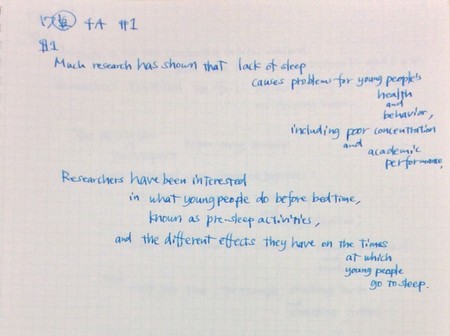 17 追 4A #1
§1
Much research has shown that lack of sleep
causes problems for young people's
health
and
behavior,
including poor concentration
and academic
performance.
Researchers have been interested
in what young people do before bedtime,
known as pre-sleep activities,
and the different effects they have on the times
at which
young people
go to sleep.